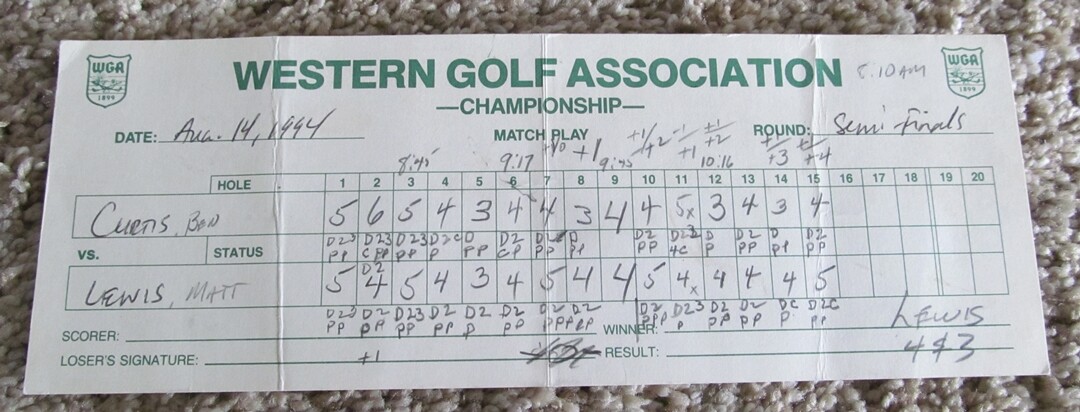 WGA
1899
WESTERN GOLF ASSOCIATION
WGA
1899
8:10 AM
—CHAMPIONSHIP—
DATE: Aug. 14, 1994
MATCH PLAY
ROUND: Semi-Finals
8:45 9:17 +1 9:45 10:16 +3 +4
HOLE 1 2 3 4 5 6 7 8 9 10 11 12 13 14 15 16 17 18 19 20
CURTIS, BEN 5 6 5 4 3 4 4 3 4 4 5x 3 4 3 4
VS. STATUS D23 D23 D23 D2 D D2 D D2 D D2 D D2
PP PP PP CP PP PP 4C P PP PP PP
LEWIS, MATT 5 4 5 4 3 4 5 4 4 5 4x 4 4 4 5
D23 D2 D23 D2 D2 D2 D2 D2 D2 D23 D2 D2 DC D2C
PP PP PP P P PP PP P PP PP P PP
SCORER:
WINNER: LEWIS
LOSER'S SIGNATURE: +1
RESULT: 4 & 3